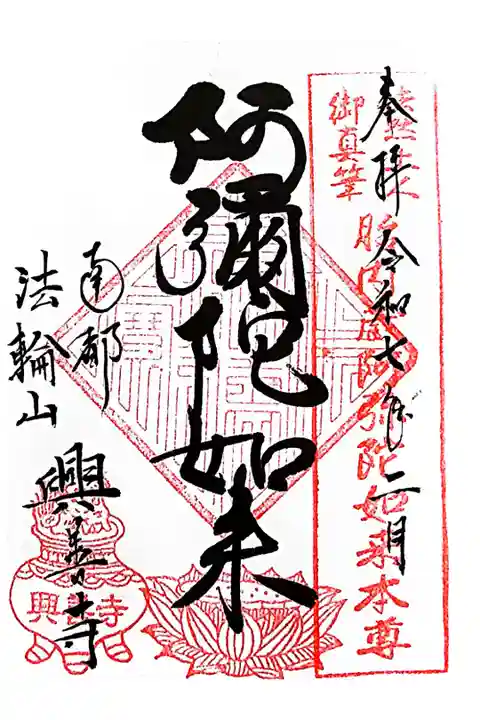 奉拝 令和七年二月
御真筆 胎内仏阿弥陀如来本尊
阿彌陀如来
南都
法輪山
興善寺
興善寺